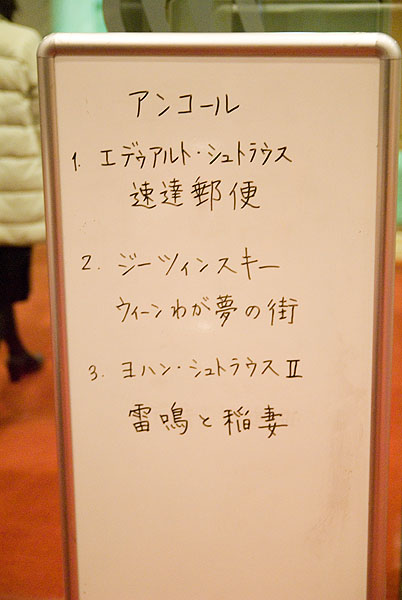 アンコール
1. エドゥアルト・シュトラウス
速達郵便
2. ジーツィンスキー
ウィーンわが夢の街
3. ヨハン・シュトラウスⅡ
雷鳴と稲妻